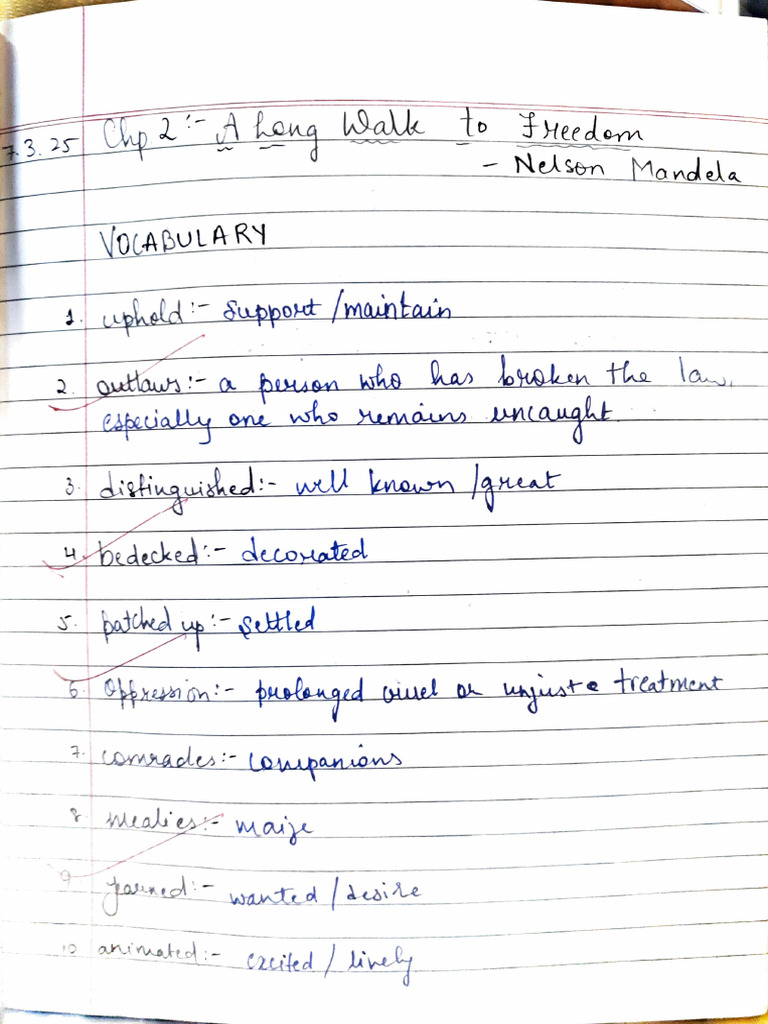 7.3.25 Chp 2 :- A Long Walk to Freedom
- Nelson Mandela
VOCABULARY
1. uphold :- support / maintain
2. outlaws :- a person who has broken the law,
especially one who remains uncaught.
3. distinguished :- well known / great
4. bedecked :- decorated
5. patched up :- settled
6. Oppression :- prolonged or unjust treatment
7. comrades :- companions
8. mealies :- maize
9. yearned :- wanted / desire
10. animated :- excited / lively